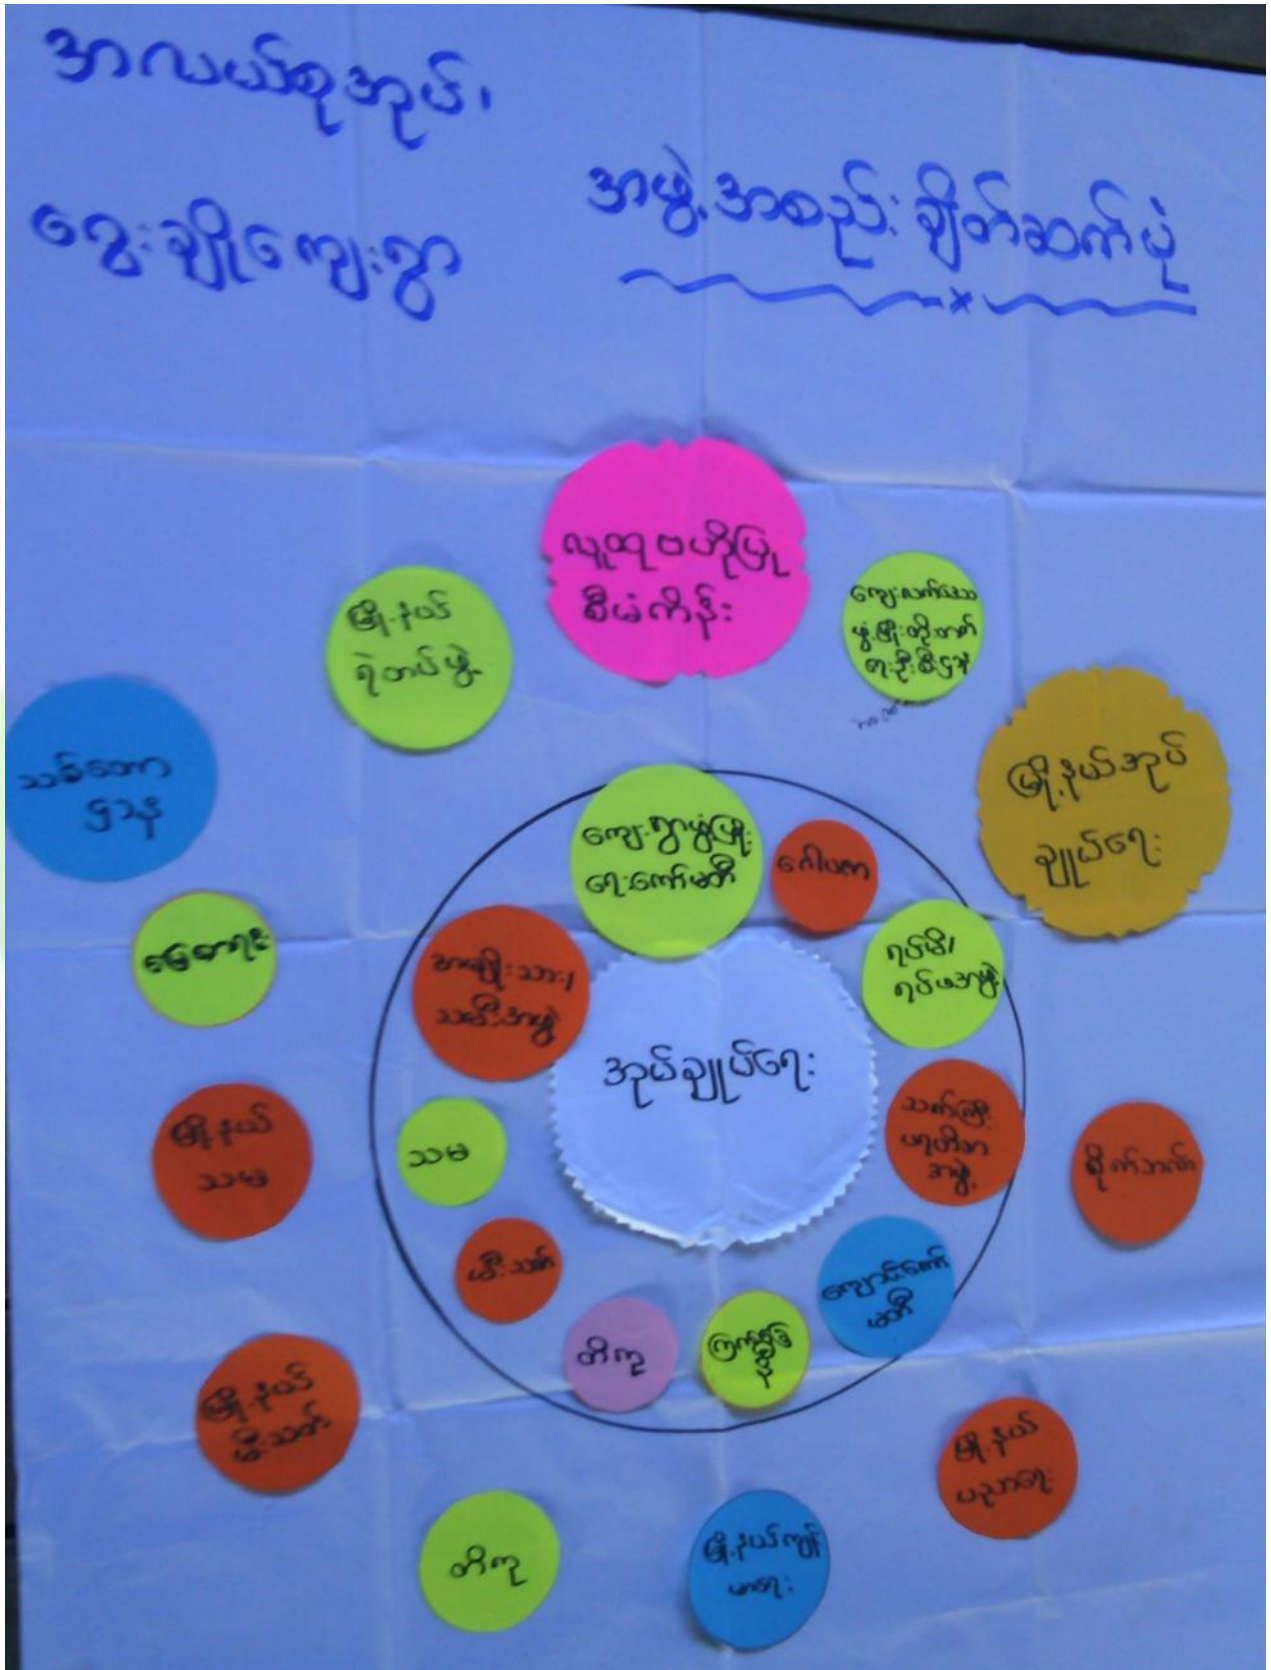 အလယ်စုအုပ်၊
ဝွေးချိုကျေးရွာ
အဖွဲ့အစည်းချိတ်ဆက်ပုံ
လူထုဗဟိုပြု
စီမံကိန်း
မြို့နယ်
ရဲတပ်ဖွဲ့
ကျေးလက်ဒေသ
ဖွံ့ဖြိုးတိုးတက်
ရေးဦးစီးဌာန
သစ်တော
ဌာန
မြို့နယ်အုပ်
ချုပ်ရေး
ကျေးရွာဖွံ့ဖြိုး
ရေးကော်မတီ
ဂေါပက
ရပ်မိ၊
ရပ်ဖအဖွဲ့
မြေစာရင်း
အမျိုးသား၊
သမီးအဖွဲ့
အုပ်ချုပ်ရေး
မြို့နယ်
သမ
သမ
သက်ကြီး
အဖွဲ့
စိုက်ဘဏ်
မီးသတ်
ကျောင်းကော်
မတီ
တီကူ
ကြက်ခြေနီ
မြို့နယ်
မီးသတ်
မြို့နယ်
ပညာရေး
တီကူ
မြို့နယ်ကျန်း
မာရေး